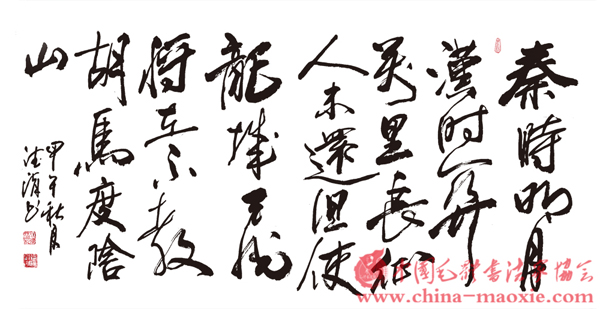 秦時明月
漢时關
萬里長征
人未還但使
龍城飛
將在不教
胡馬度陰
山
甲午秋月
書
中國毛書法家協會
www.china-maoxie.com